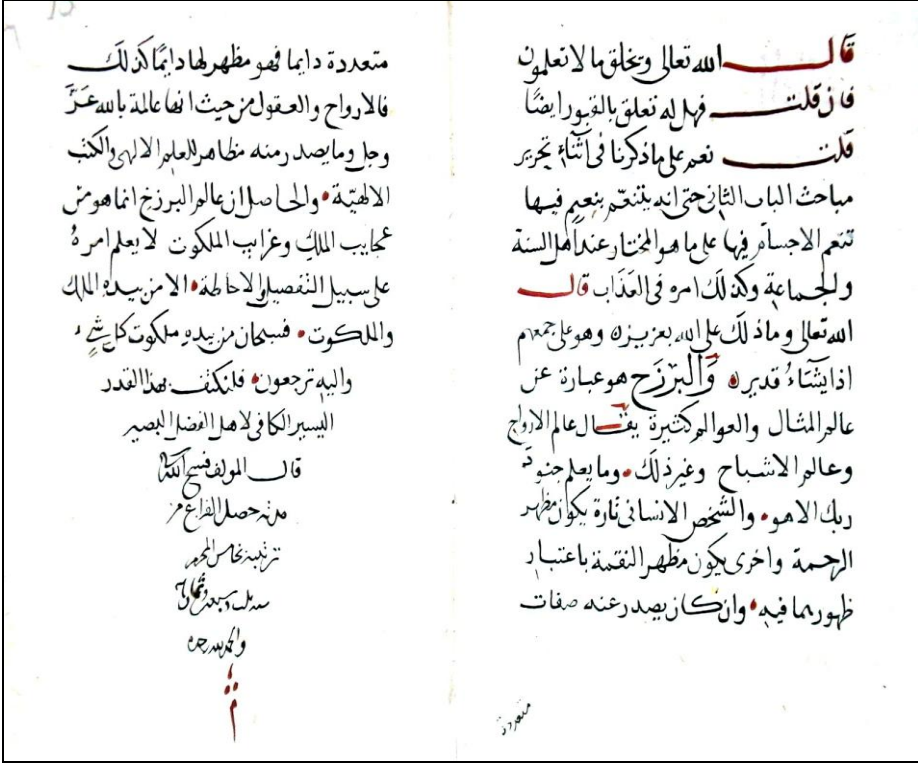 قال الله تعالى ويخلق ما لا تعلمون
فان قلت فهل له تعلق بالقبور ايضًا
قلت نعم على ما ذكرنا فى اثنآء تحرير
مباحث الباب الثانى حتى انه يتنعّم بنعيم فيها
تنعم الاجسام فيها على ما هو المختار عند اهل السنة
والجماعة وكذلك امره فى العذاب قال
الله تعالى وما ذلك على الله بعزيز وهو على جمعهم
اذا يشآء قدير والبرزخ هو عبارة عن
عالم المثال والعوالم كثيرة يقال عالم الارواح
وعالم الاشباح وغير ذلك وما يعلم جنود
ربك الا هو والشخص الانسانى تارة يكون مظهر
الرحمة واخرى يكون مظهر النقمة باعتبار
ظهورهما فيه وان كان يصدر عنه صفات
متعددة
متعددة دايما فهو مظهر لها دايمًا كذلك
فالارواح والعقول من حيث انها عالمة بالله عَزَّ
وجل وما يصدر منه مظاهر للعلم الالهى والكتب
الالهيّة والحاصل ان عالم البرزخ انما هو من
عجايب الملك وغرايب الملكوت لا يعلم امره
على سبيل التفصيل والاحاطة الا من بيده الملك
والملكوت فسبحان من بيده ملكوت كل شيء
واليه ترجعون فلنكتف بهذا القدر
اليسير الكافى لاهل الفضل البصير
قال المولف فسح الله
مدته حصل الفراغ من
ترتيبه بخامس المحرم
سنة ثلث وسبعين وثمان
والحمد لله وحده
م